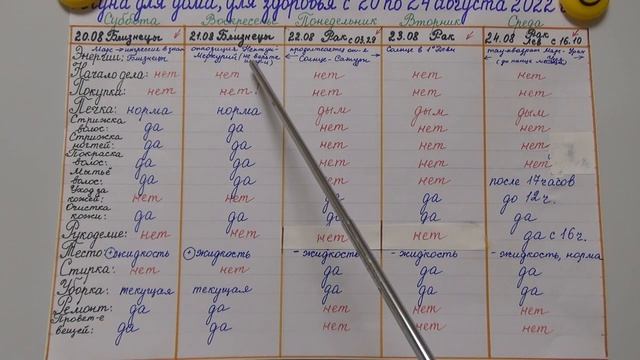 Луна для дома, для здоровья с 20 по 24 августа 2022 г
Суббота Воскресенье Понедельник Вторник Среда
20.08 Близнецы 21.08 Близнецы 22.08 Рак с 03.29 23.08 Рак 24.08 Рак Лев с 16.10
Энергии: Марс Близнецы оппозиция Нептун- Меркурий Солнце-Сатурн Солнце в 1° Девы Марс-
Начало дела: нет нет нет нет нет
Покупка: нет нет нет нет нет
Печка: норма норма дым дым дым
Стрижка волос: да да нет нет нет
Стрижка ногтей: да да нет нет нет
Покраска волос: да да нет нет нет
Мытьё волос: да да нет нет после 17 часов
Уход за кожей: нет нет да да до 12 ч.
Очистка кожи: да да да да да
Рукоделие: нет нет нет нет да с 16 ч.
Тесто: + жидкость + жидкость - жидкость - жидкость - жидкость, норма
Стирка: нет нет да да да
Уборка: текущая текущая да да да
Ремонт: да да нет нет нет
Провет-е вещей: да да нет нет нет